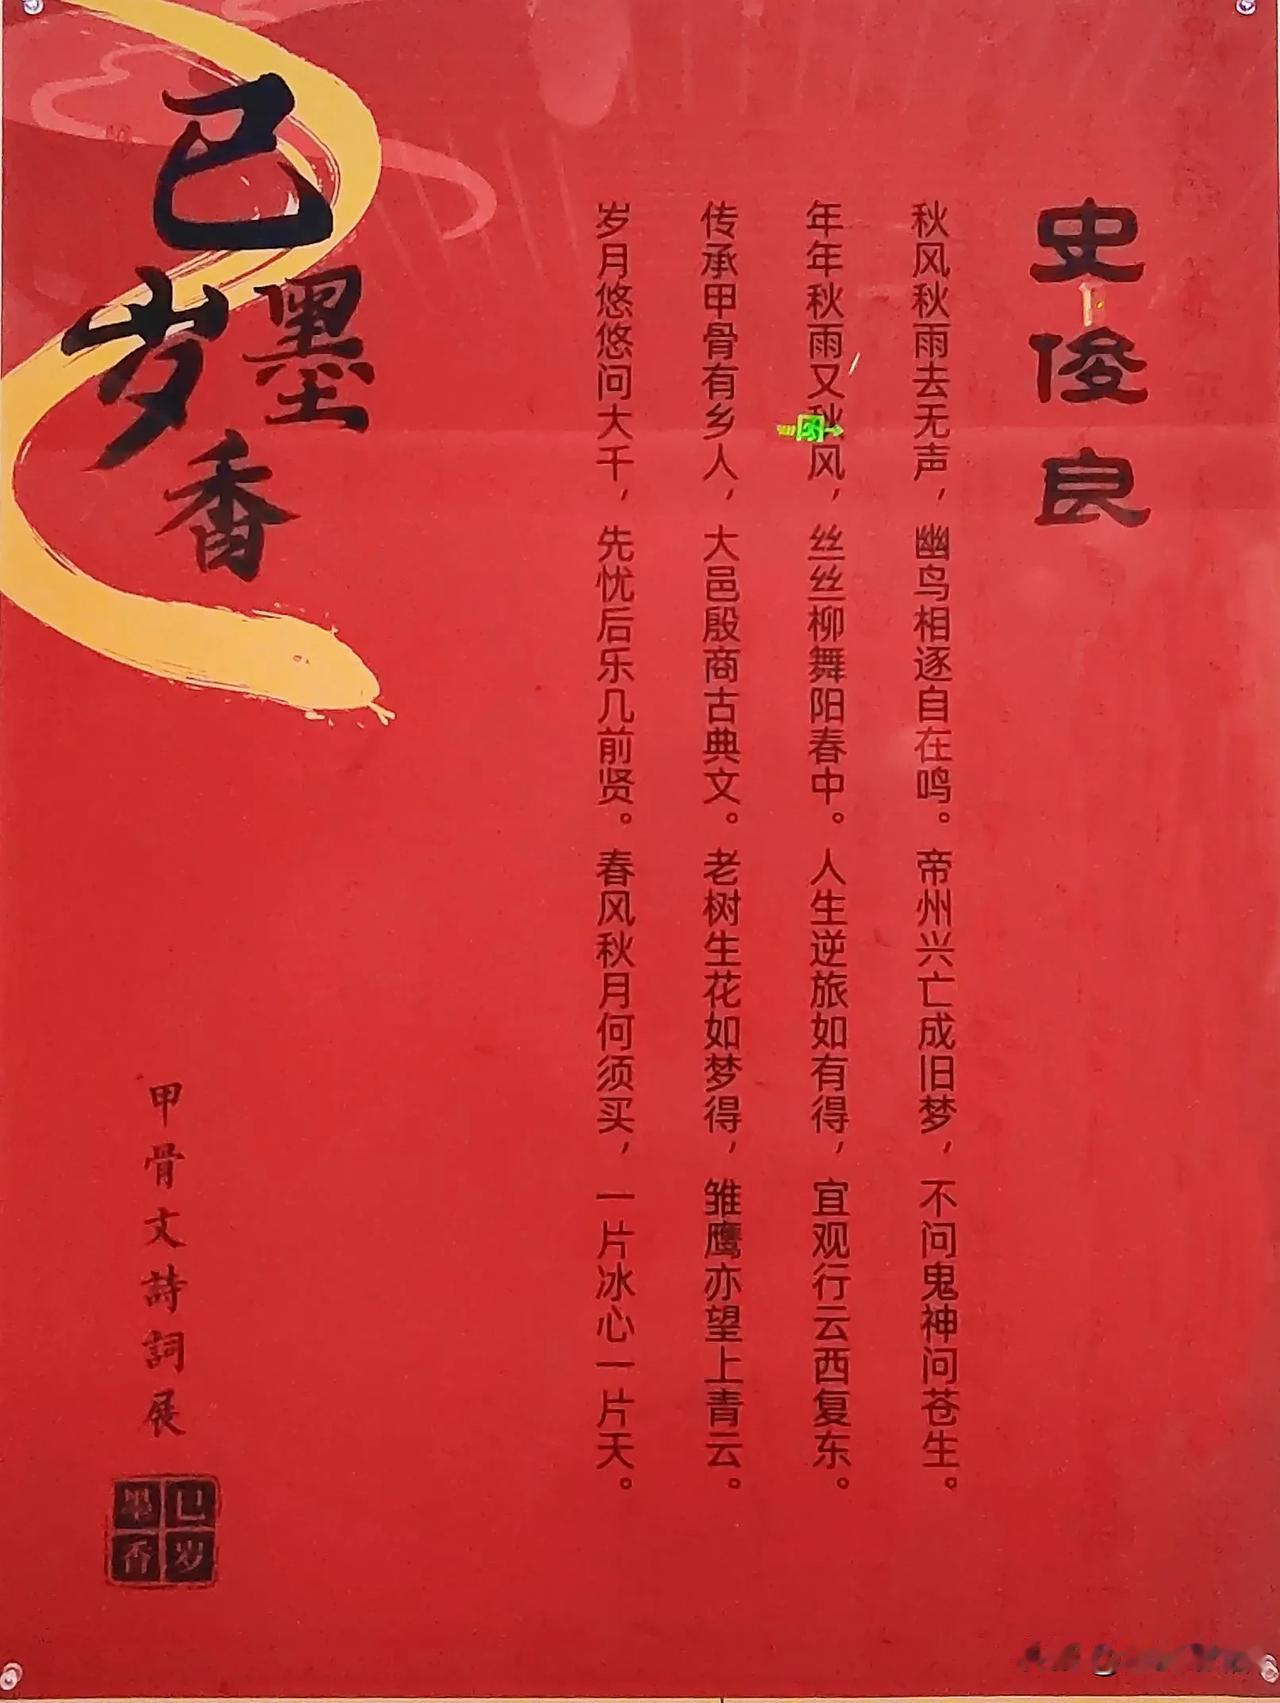 史俊良
秋风秋雨去无声，幽鸟相逐自在鸣。帝州兴亡成旧梦，不问鬼神问苍生。
年年秋雨又秋风，丝丝柳舞阳春中。人生逆旅如有得，宜观行云西复东。
传承甲骨有乡人，大邑殷商古典文。老树生花如梦得，雏鹰亦望上青云。
岁月悠悠问大千，先忧后乐几前贤。春风秋月何须买，一片冰心一片天。
巳岁墨香
甲骨文詩詞展
巳岁墨香